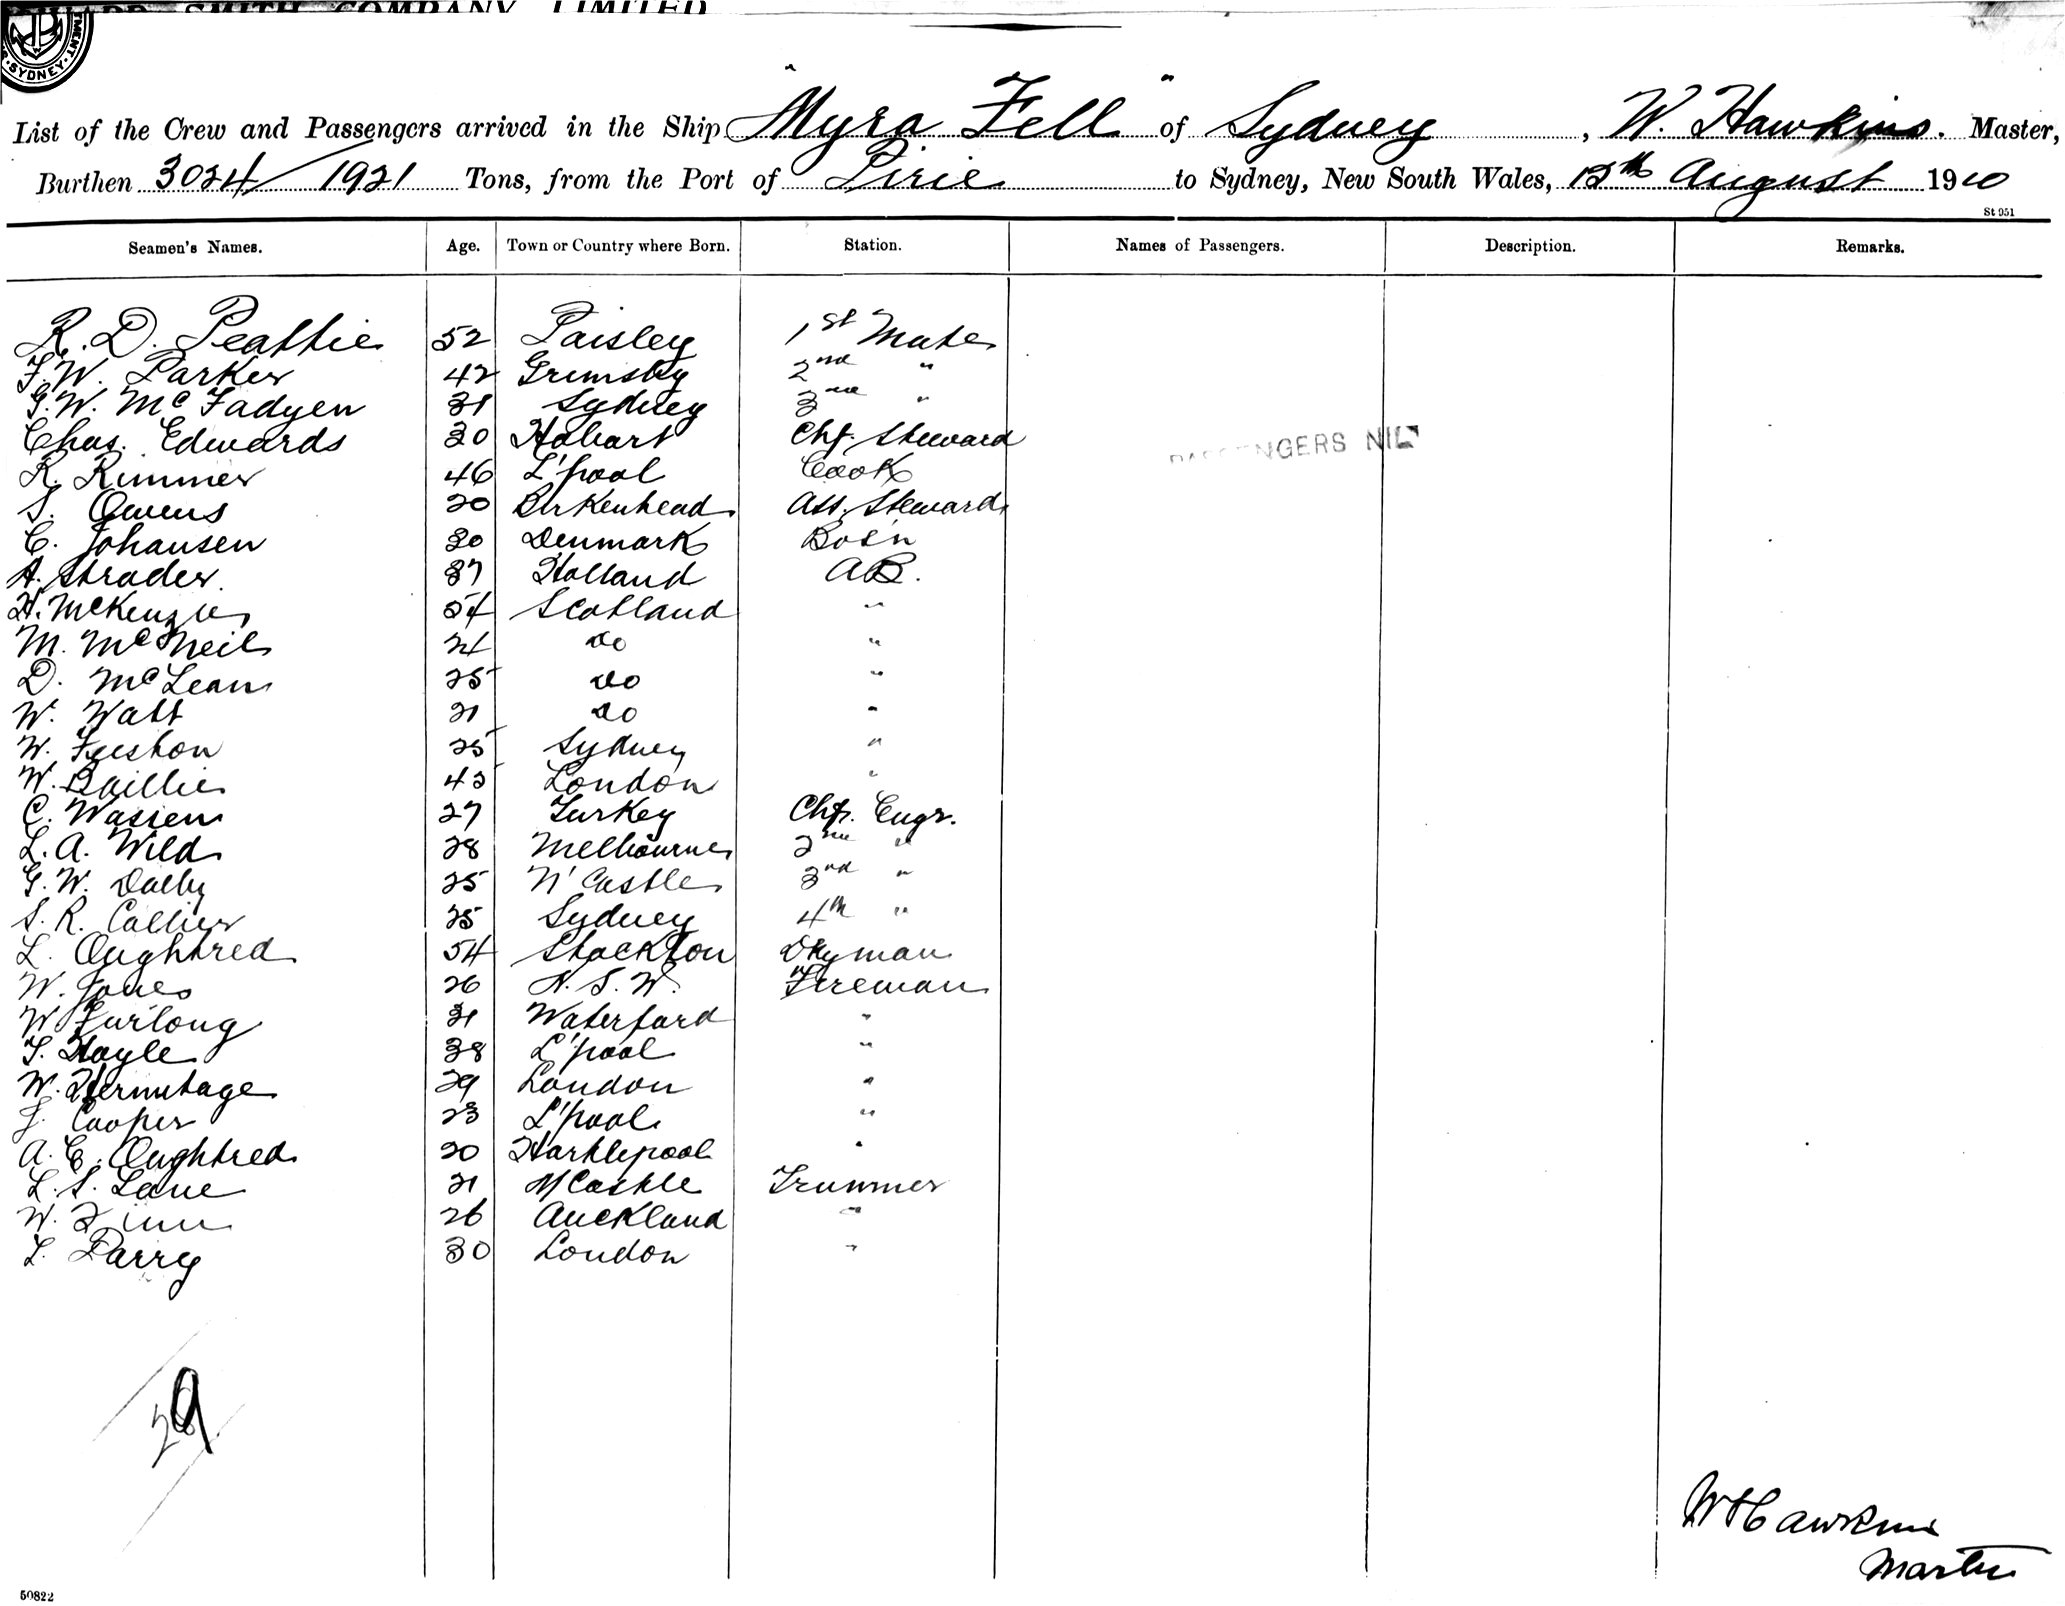 SMITH COMPANY LIMITED
SYDNEY
List of the Crew and Passengers arrived in the Ship "Myra Fell" of Sydney, W. Hawkins. Master,
Burthen 3024/1921 Tons, from the Port of Pirie to Sydney, New South Wales, August 1910
St 951
Seamen's Names. Age. Town or Country where Born. Station. Names of Passengers. Description. Remarks.
R. D. Peattie 52 Paisley 1st Mate
F. W. Parker 42 Grimsby 2nd "
G. W. McFadyen 31 Sydney 3rd "
Chas. Edwards 30 Hobart Chf. Steward
PASSENGERS NIL
R. Rimmer 46 L'pool Cook
S. Owens 20 Birkenhead Ass. Steward
C. Johansen 30 Denmark Bos'n
A. Strader 37 Holland AB.
H. McKenzie 54 Scotland "
M. McNeil 24 do "
D. McLean 25 do "
W. Watt 21 do "
W. 25 Sydney "
W. Baillie 45 London "
C. Wassem 27 Turkey Chf. Engr.
L. A. Wild 28 Melbourne 2nd "
G. W. Dalby 25 N'Castle 3rd "
S. R. Collier 25 Sydney 4th "
L. Oughtred 54 Stockton Dkyman
W. Jones 26 N. S. W. Fireman
W Furlong 31 Waterford "
T. Hoyle 38 L'pool "
W. Hermitage 29 London "
J. Cooper 23 L'pool "
A. E. Oughtred 20 Hartlepool "
L. S. Lane 21 N'Castle Trimmer
W. Finn 26 Auckland "
L. Parry 30 London "
29
W Hawkins
Master
50822